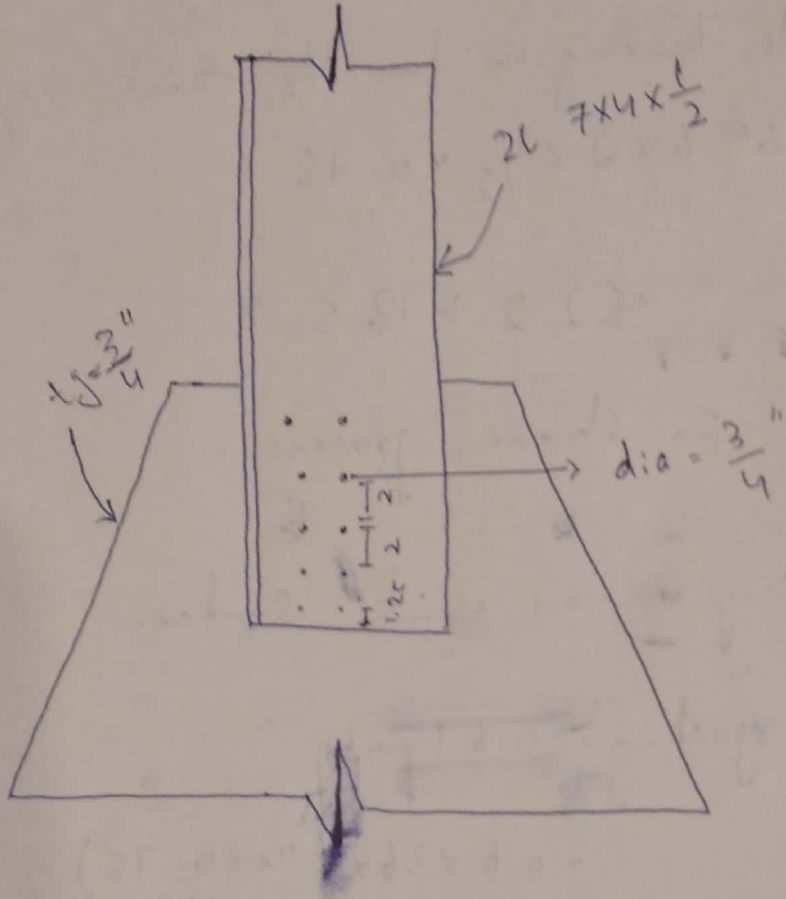 2L 7x4x1/2
tg = 3/4"
dia = 3/4"
2
2
1.25